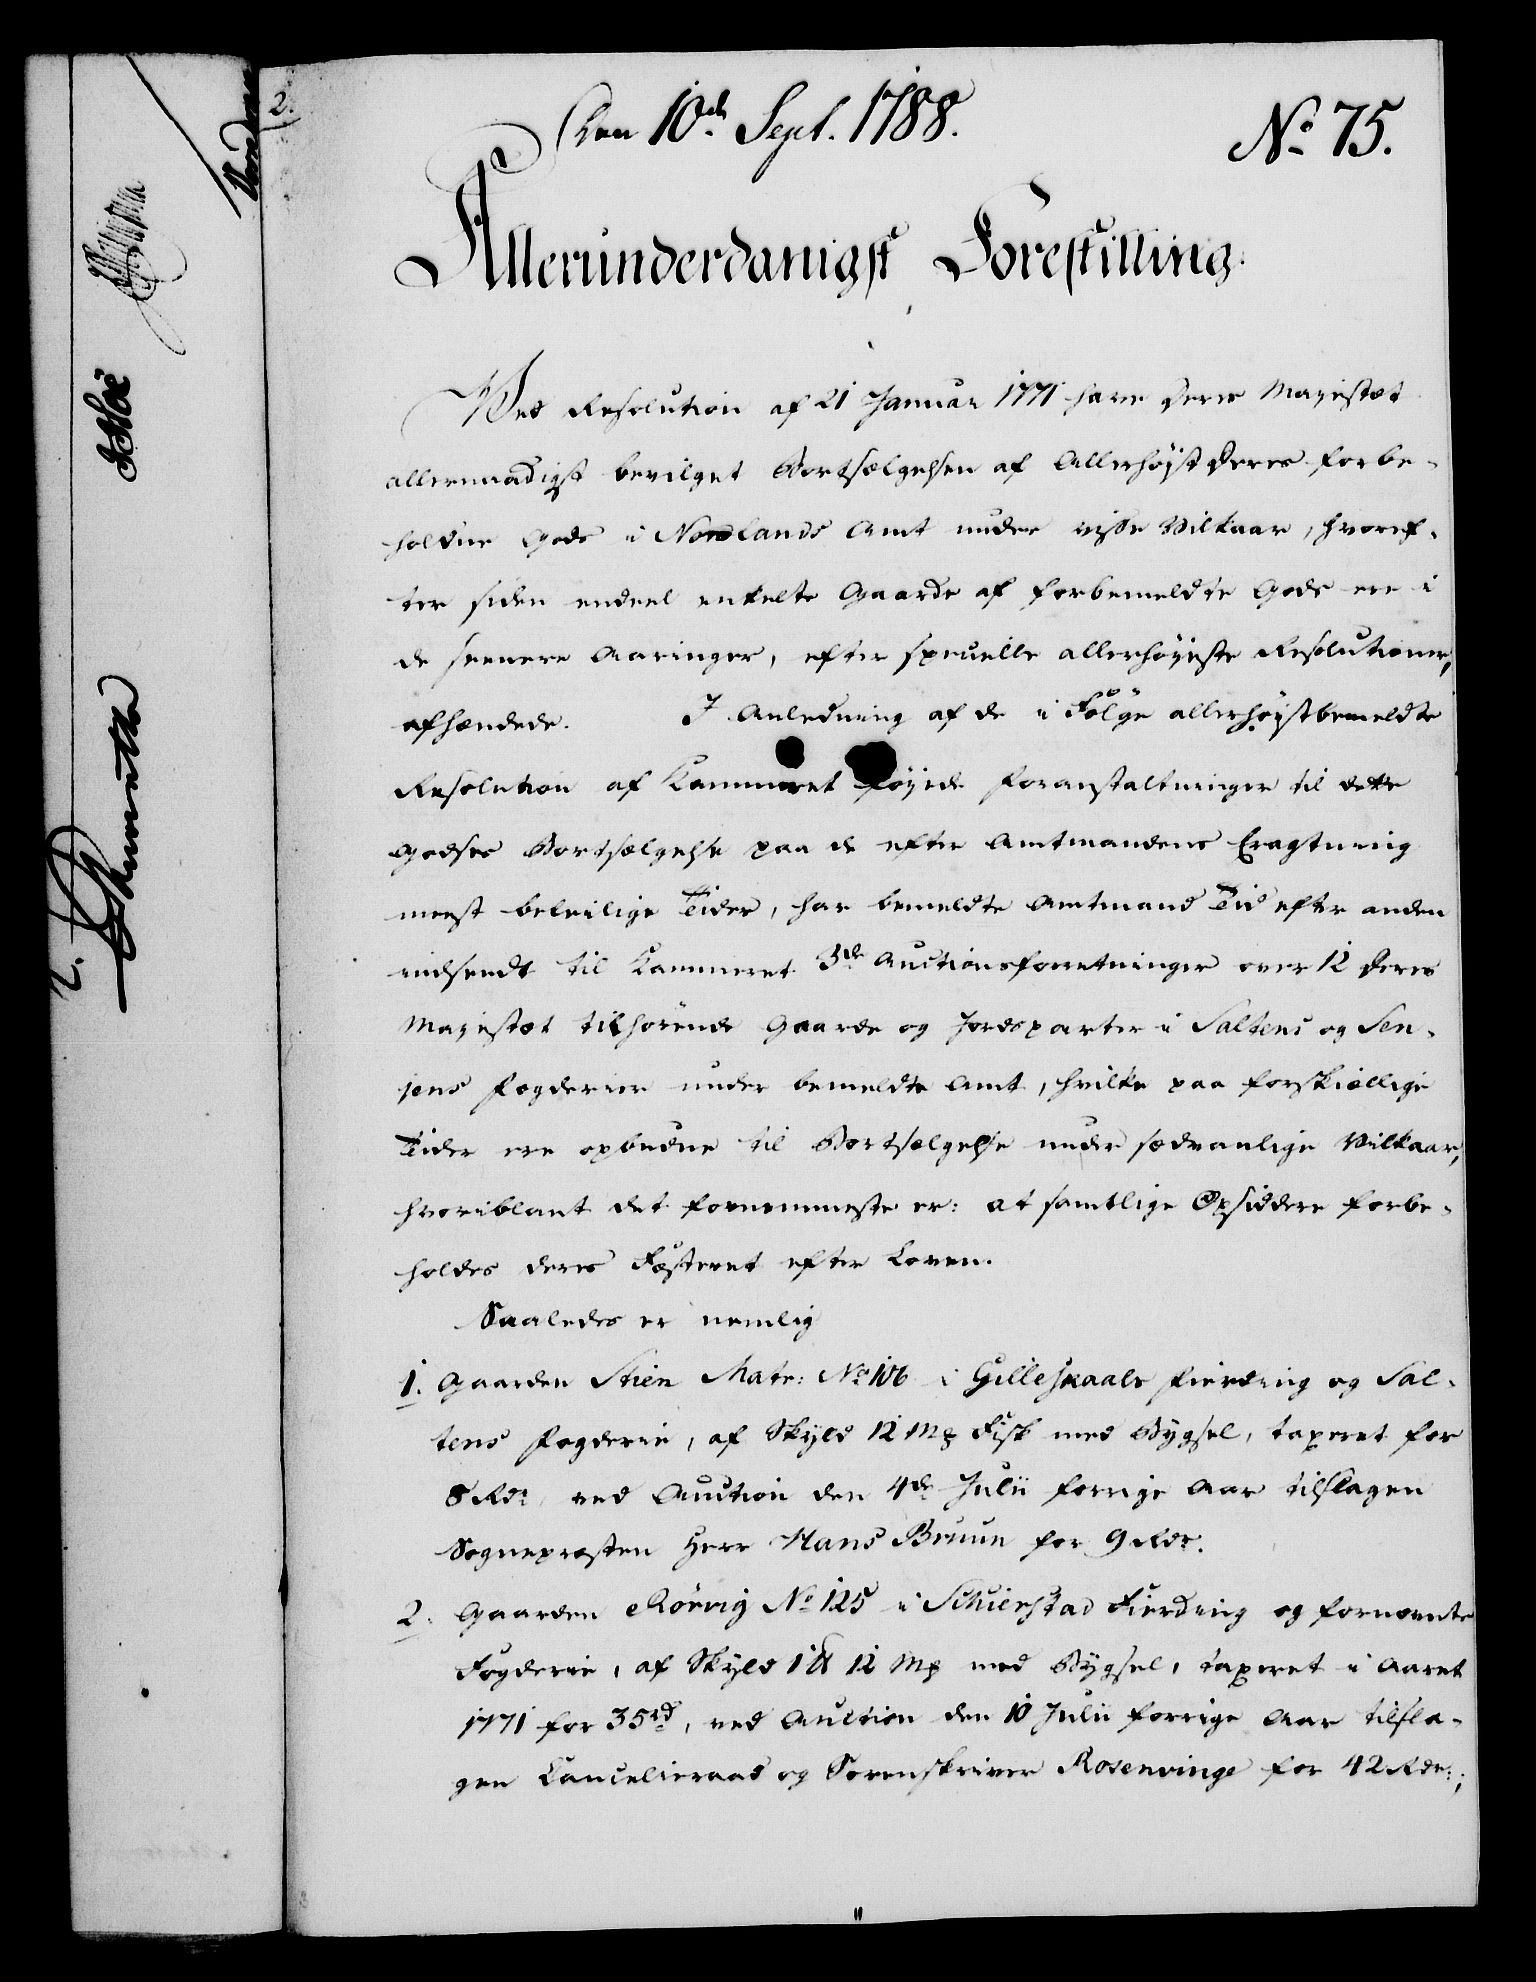 2.
Den 10de Sept. 1788.
No 75.
Allerunderdanigst Forestilling.
Ved Resolution af 21 Januar 1771 have Deres Majestæt
allernaadigst bevilget Bortsælgelsen af Allerhøjst Deres forbe-
holdne Gods i Nordlands Amt under visse Vilkaar, hvoref-
ter siden endeel enkelte Gaarde af forbemeldte Gods ere i
de seenere Aaringer, efter specielle allerhøjeste Resolutioner,
afhændede. I Anledning af de i Følge allerhøjstbemeldte
Resolution af Kammeret føjede Foranstaltninger til dette
Godses Bortsælgelse paa de efter Amtmandens Eragtning
meest beleilige Tider, har bemeldte Amtmand Tid efter anden
indsendt til Kammeret 3de Auctionsforretninger over 12 Deres
Majestæt tilhørende Gaarde og Jordsparter i Saltens og Sen-
jens Fogderier under bemeldte Amt, hvilke paa forskiællige
Tider ere opbudne til Bortsælgelse under sædvanlige Vilkaar,
hvoriblant det fornemmeste er: at samtlige Opsiddere forbe-
holdes deres Fæsteret efter Loven.
Saaledes er nemlig
1. Gaarden Stien Matr: No 106 i Gilleskaals Fierding og Sal-
tens Fogderie, af Skyld 12 Mk Fisk med Bygsel, taxeret for
8 Rdr, ved Auction den 4de Julii forrige Aar tilslagen
Sognepræsten Herr Hans Bruun for 9 Rdr.
2. Gaarden Rörvig No 125 i Schierstad Fierding og fornevnte
Fogderie, af Skyld 1 ℔ 12 Mk med Bygsel, taxeret i Aaret
1771 for 35rd, ved Auction den 10 Julii forrige Aar tilsla-
gen Cancelieraad og Sorenskriver Rosenvinge for 42 Rdr:;